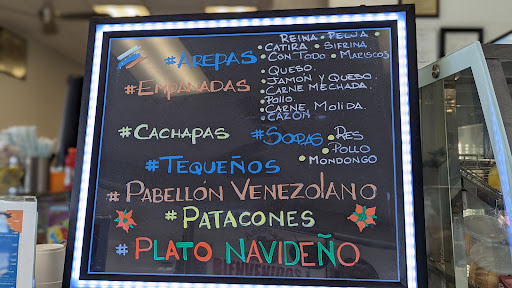 #AREPAS
• REINA • PELUA
• CATIRA • SIFRINA
• CON TODO • MARISCOS
#EMPANADAS
• QUESO.
• JAMÓN Y QUESO.
• CARNE MECHADA.
• POLLO
• CARNE MOLIDA.
• CAZÓN
#CACHAPAS
#SOPAS
• RES
• POLLO
• MONDONGO
#TEQUEÑOS
#PABELLÓN VENEZOLANO
#PATACONES
#PLATO NAVIDEÑO
BIENVENIDOS